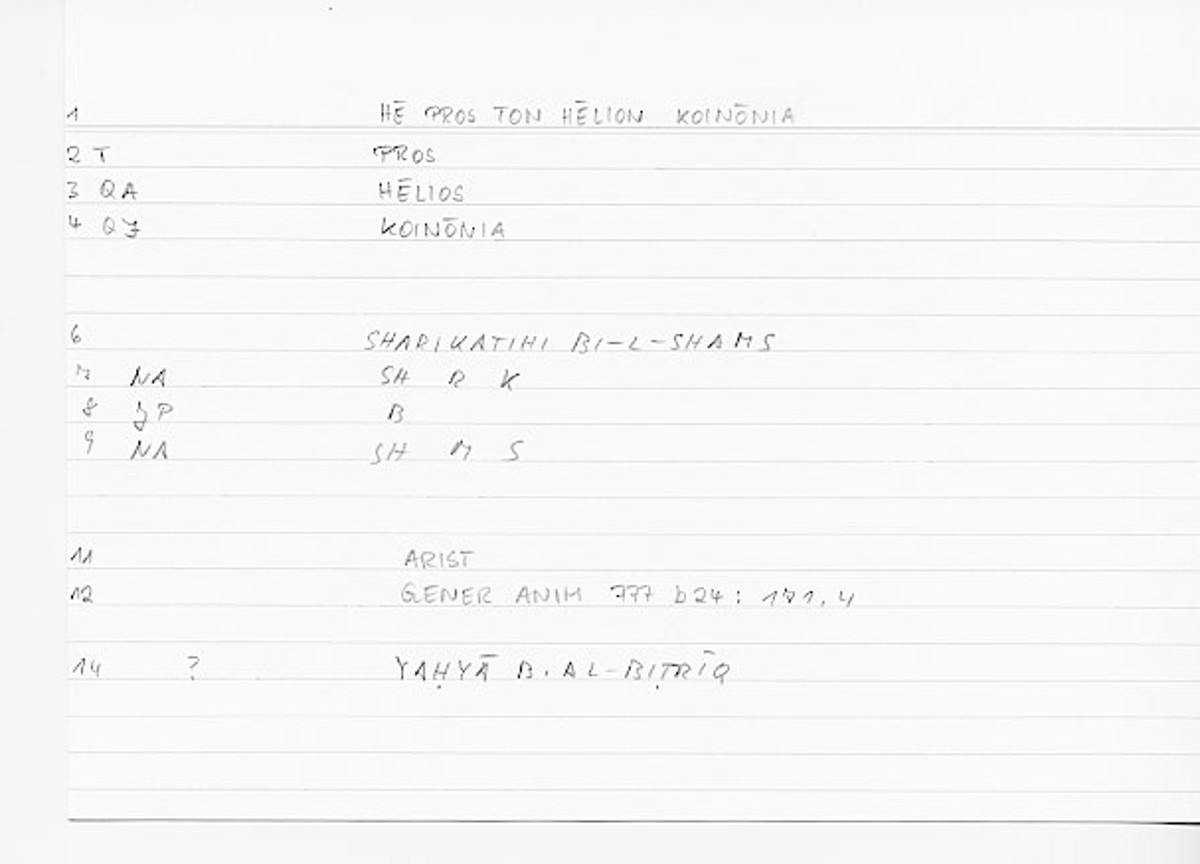 1 HĒ PROS TON HĒLION KOINŌNIA
2 T PROS
3 QA HĒLIOS
4 QJ KOINŌNIA
6 SHARIKATIHI BI-L-SHAMS
7 NA SH R K
8 JP B
9 NA SH M S
11 ARIST
12 GENER ANIM 777 b24: 171,4
14 ? YAḤYĀ B. AL-BIṬRĪQ